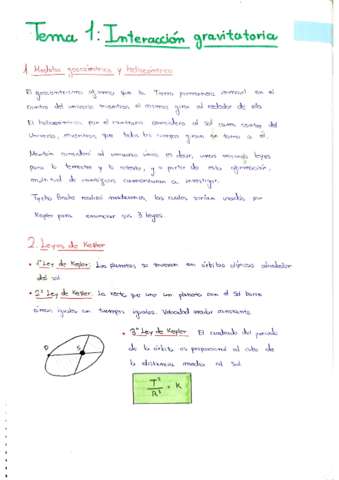 Tema 1: Interacción gravitatoria
1. Modelos geocéntrico y heliocéntrico
El geocentrismo afirma que la Tierra permanece inmóvil en el
centro del universo mientras el mismo gira al rededor de ella.
El heliocentrismo por el contrario considera al sol como centro del
Universo, mientras que todos los cuerpos giran en torno a él.
Newton consideró al universo único, es decir, unas mismas leyes
para lo terrestre y lo celeste, y a partir de esta afirmación,
multitud de científicos comenzaron a investigar.
Tycho Brahe realizó mediciones, las cuales serían usadas por
Kepler para enunciar sus 3 leyes.
2. Leyes de Kepler
• 1ª Ley de Kepler: Los planetas se mueven en órbitas elípticas alrededor
del sol.
• 2ª Ley de Kepler: La recta que une un planeta con el Sol barre
áreas iguales en tiempos iguales. Velocidad areolar constante
• 3ª Ley de Kepler: El cuadrado del periodo
de la órbita es proporcional al cubo de
la distancia media al Sol
S
T²/R³ = K